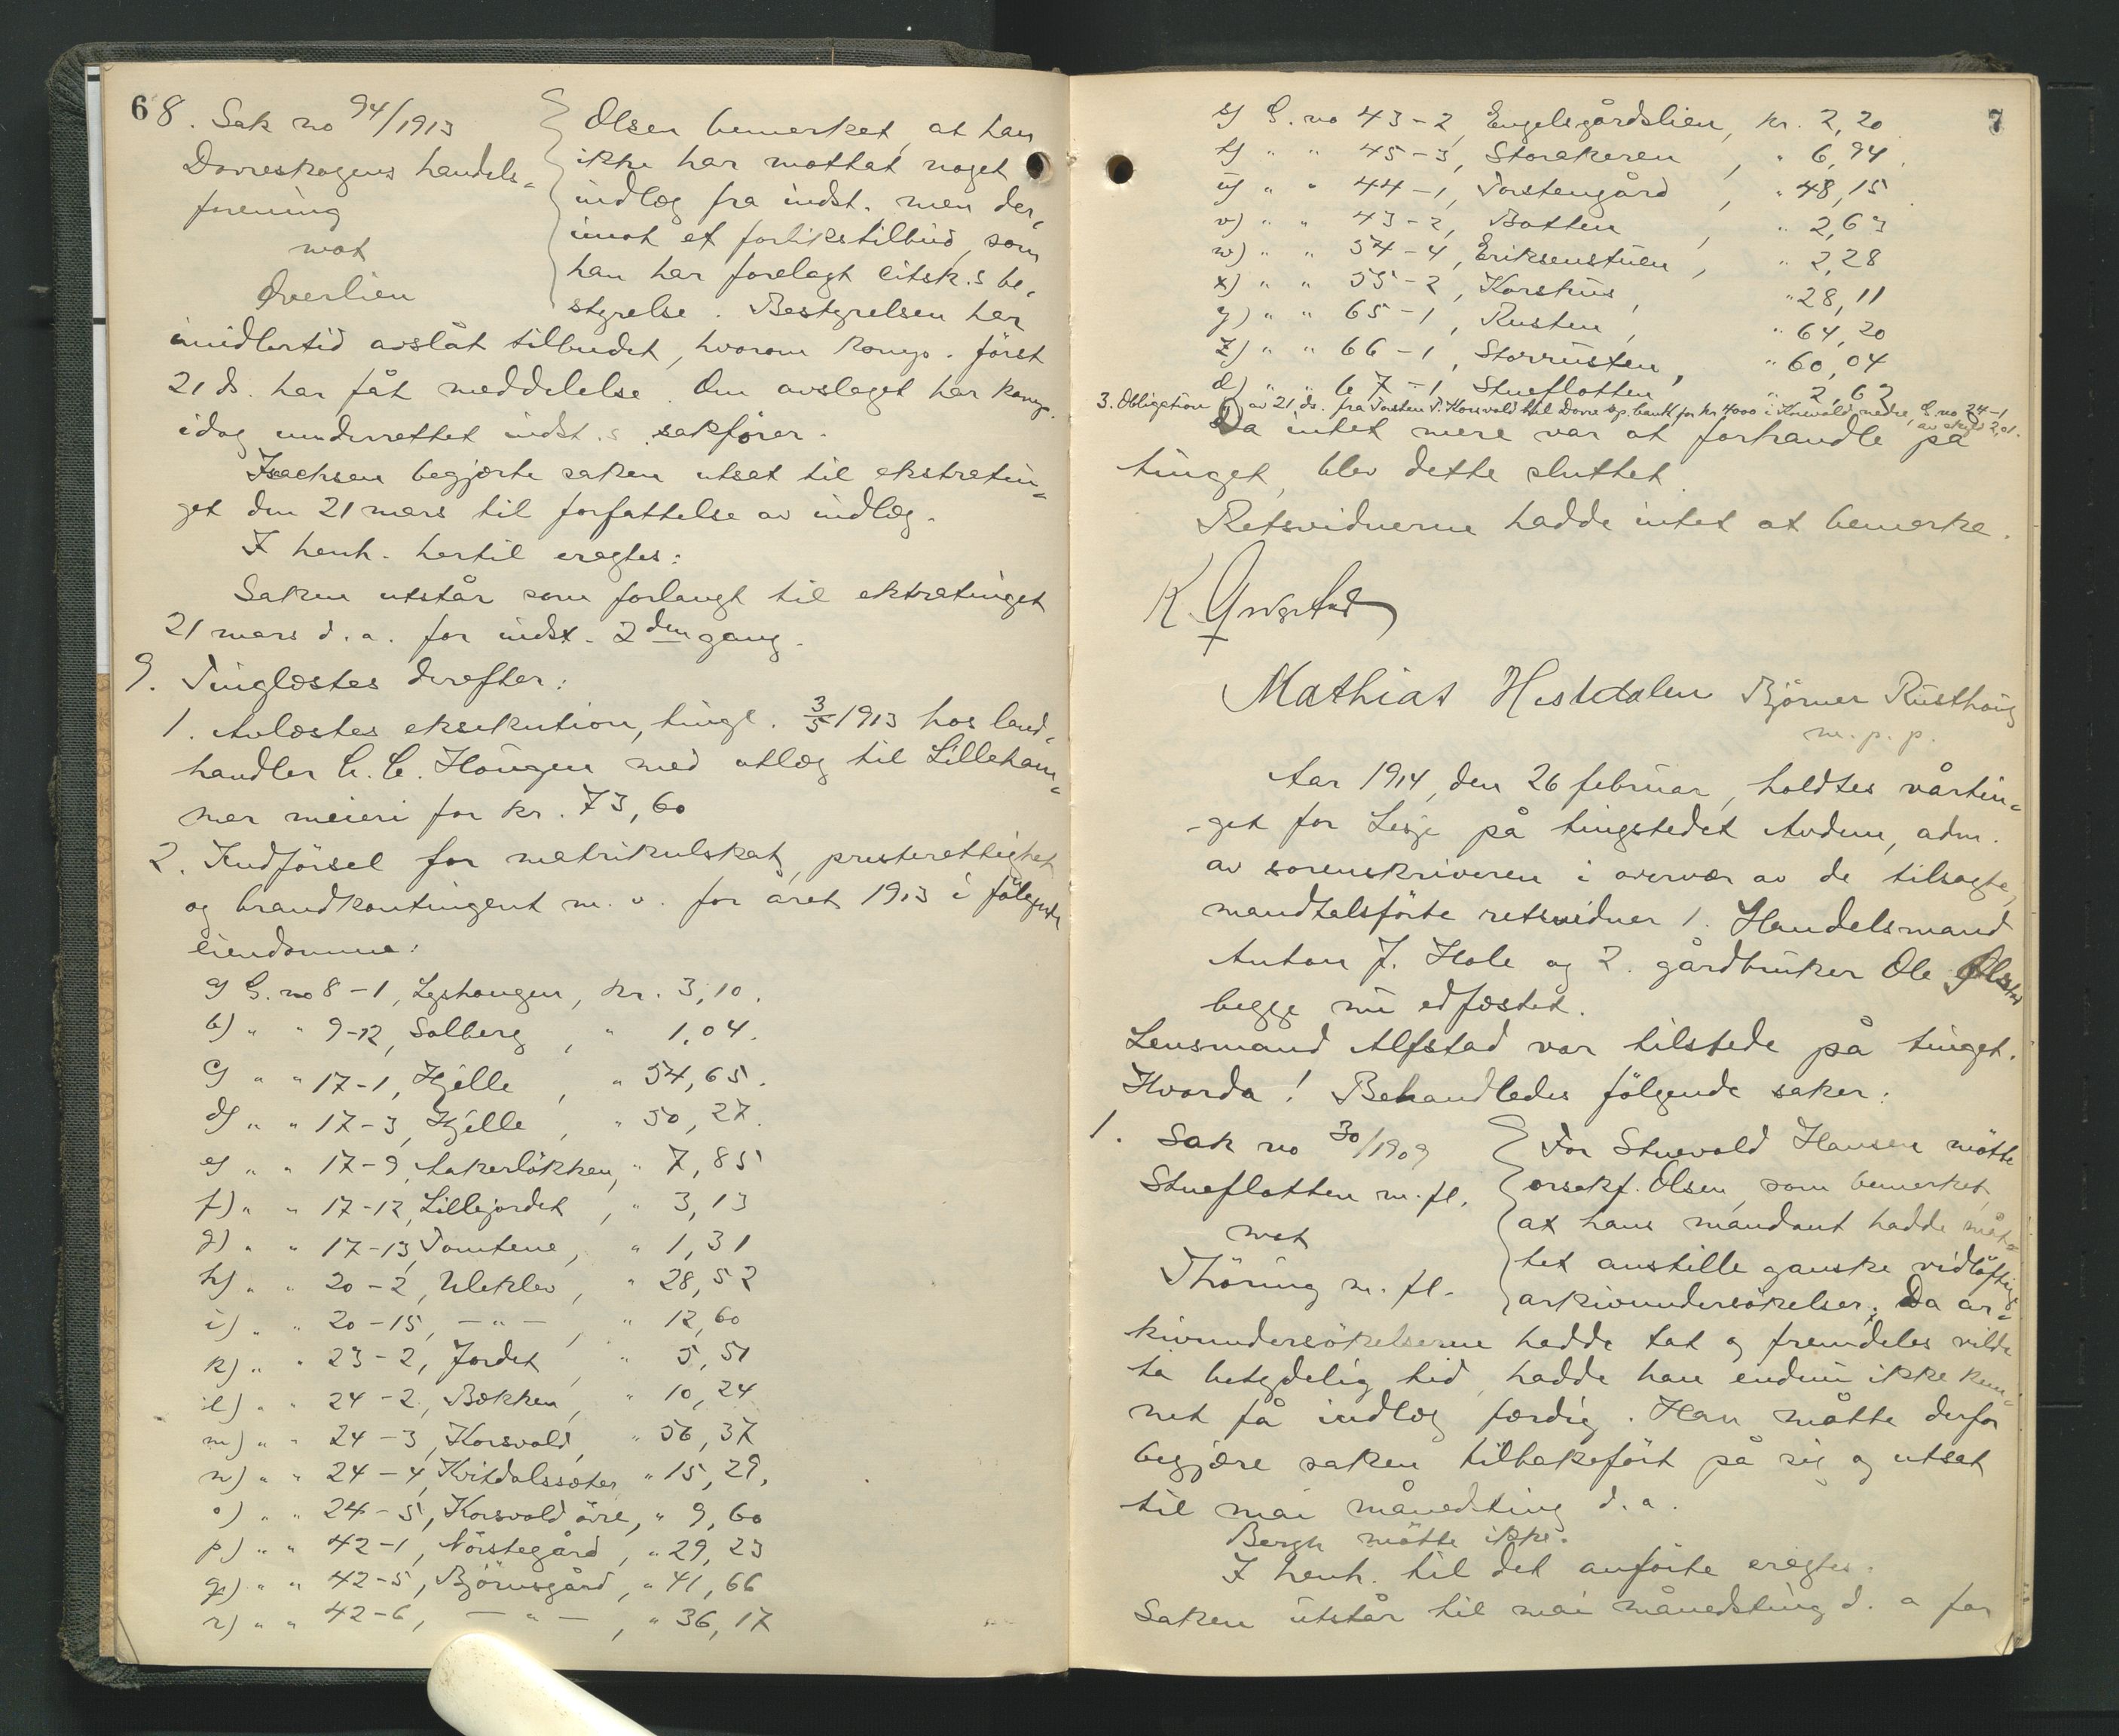 6
8. Sak no 94/1913
Dovreskogens handels-
forening
mot
Øverlien
Olsen bemerket, at han
ikke har mottat noget
indlæg fra indst. men der-
imot et forlikstilbud, som
han har forelagt citsk.s be-
styrelse. Bestyrelsen har
imidlertid avslåt tilbudet, hvorom komp. først
21 ds. har fåt meddelelse. Om avslaget har komp.
idag underrettet indst.s sakfører.
Isachsen begjærte saken utsat til ekstratin-
get den 21 mars til forfattelse av indlæg.
I henh. hertil eragtes:
Saken utstår som forlangt til ekstratinget
21 mars d. a. for indst. 2den gang.
9. Tinglæstes derefter:
1. Avlæstes eksekution, tingl. 3/5 1913 hos land-
handler C. C. Haugen med utlæg til Lilleham-
mer meieri for kr. 73,60
2. Indførsel for matrikulskat, presterettighet
og brandkontingent m. v. for året 1913 i følgende
eiendomme:
a) G. no 8-1, Lyshaugen, kr. 3,10.
b) " " 9-12, Solberg, " 1,04.
c) " " 17-1, Hjelle, " 54,65.
d) " " 17-3, Hjelle, " 50,27.
e) " " 17-9, Aakerløkken, " 7,85
f) " " 17-12, Lillejordet, " 3,13
g) " " 17-13, Tomtene, " 1,31
h) " " 20-2, Uleklev, " 28,52
i) " " 20-15, — " —, " 12,60
k) " " 23-2, Jordet, " 5,51
l) " " 24-2, Bækken, " 10,24
m) " " 24-3, Korsvold, " 56,37
n) " " 24-4, Kvitdalssæter " 15,29,
o) " " 24-5, Korsvold øvre, " 9,60
p) " " 42-1, Nørstegård, " 29,23
q) " " 42-5, Bjørnsgård, " 41,66
r) " " 42-6, — " —, " 36,17
7
s) G. no 43-2, Engelsgårdslien, kr. 2,20
t) " " 45-3, Storakeren, " 6,94.
u) " " 44-1, Torstengård, " 48,15
v) " " 43-2, Botten, " 2,63
w) " " 54-4, Eriksenstuen, " 2,28
x) " " 55-2, Korshus, " 28,11
y) " " 65-1, Rusten, " 64,20
z) " " 66-1, Storrusten, " 60,04
æ) " " 67-1, Stueflotten " 2,62
3. Obligation av 21 ds. fra Torsten T. Korsvold til Dovre sp. bank for kr 4000 i Korsvold nedre, G no 24-1
av skyld 2,01.
Da intet mere var at forhandle på
tinget, blev dette sluttet.
Retsvidnerne hadde intet at bemerke.
K.
Mathias Hestdalen Bjørner Rusthaug
m. p. p.
Aar 1914, den 26 februar, holdtes vårtin-
-get for Lesje på tingstedet Avdem, adm.
av sorenskriveren i overvær av de tilsagte,
mandtalsførte retsvidner 1. Handelsmand
Anton J. Hole og 2. gårdbruker Ole Olstad
begge nu edfæstet.
Lensmand Alfstad var tilstede på tinget.
Hvorda! Behandledes følgende saker:
1. Sak no 30/1909
Stueflotten m. fl.
mot
Thøring m. fl.
For Stuevold Hansen møtte
orsakf. Olsen, som bemerket,
at hans mandant hadde måt-
tet anstille ganske vidløftige
arkivundersøkelser. Da ar-
kivundersøkelserne hadde tat og fremdeles vilde
ta betydelig tid, hadde han endnu ikke kun-
net få indlæg færdig. Han måtte derfor
begjære saken tilbakeført på sig og utsat
til mai månedsting d. a.
Bergh møtte ikke.
I henh. til det anførte eragtes:
Saken utstår til mai månedsting d. a for